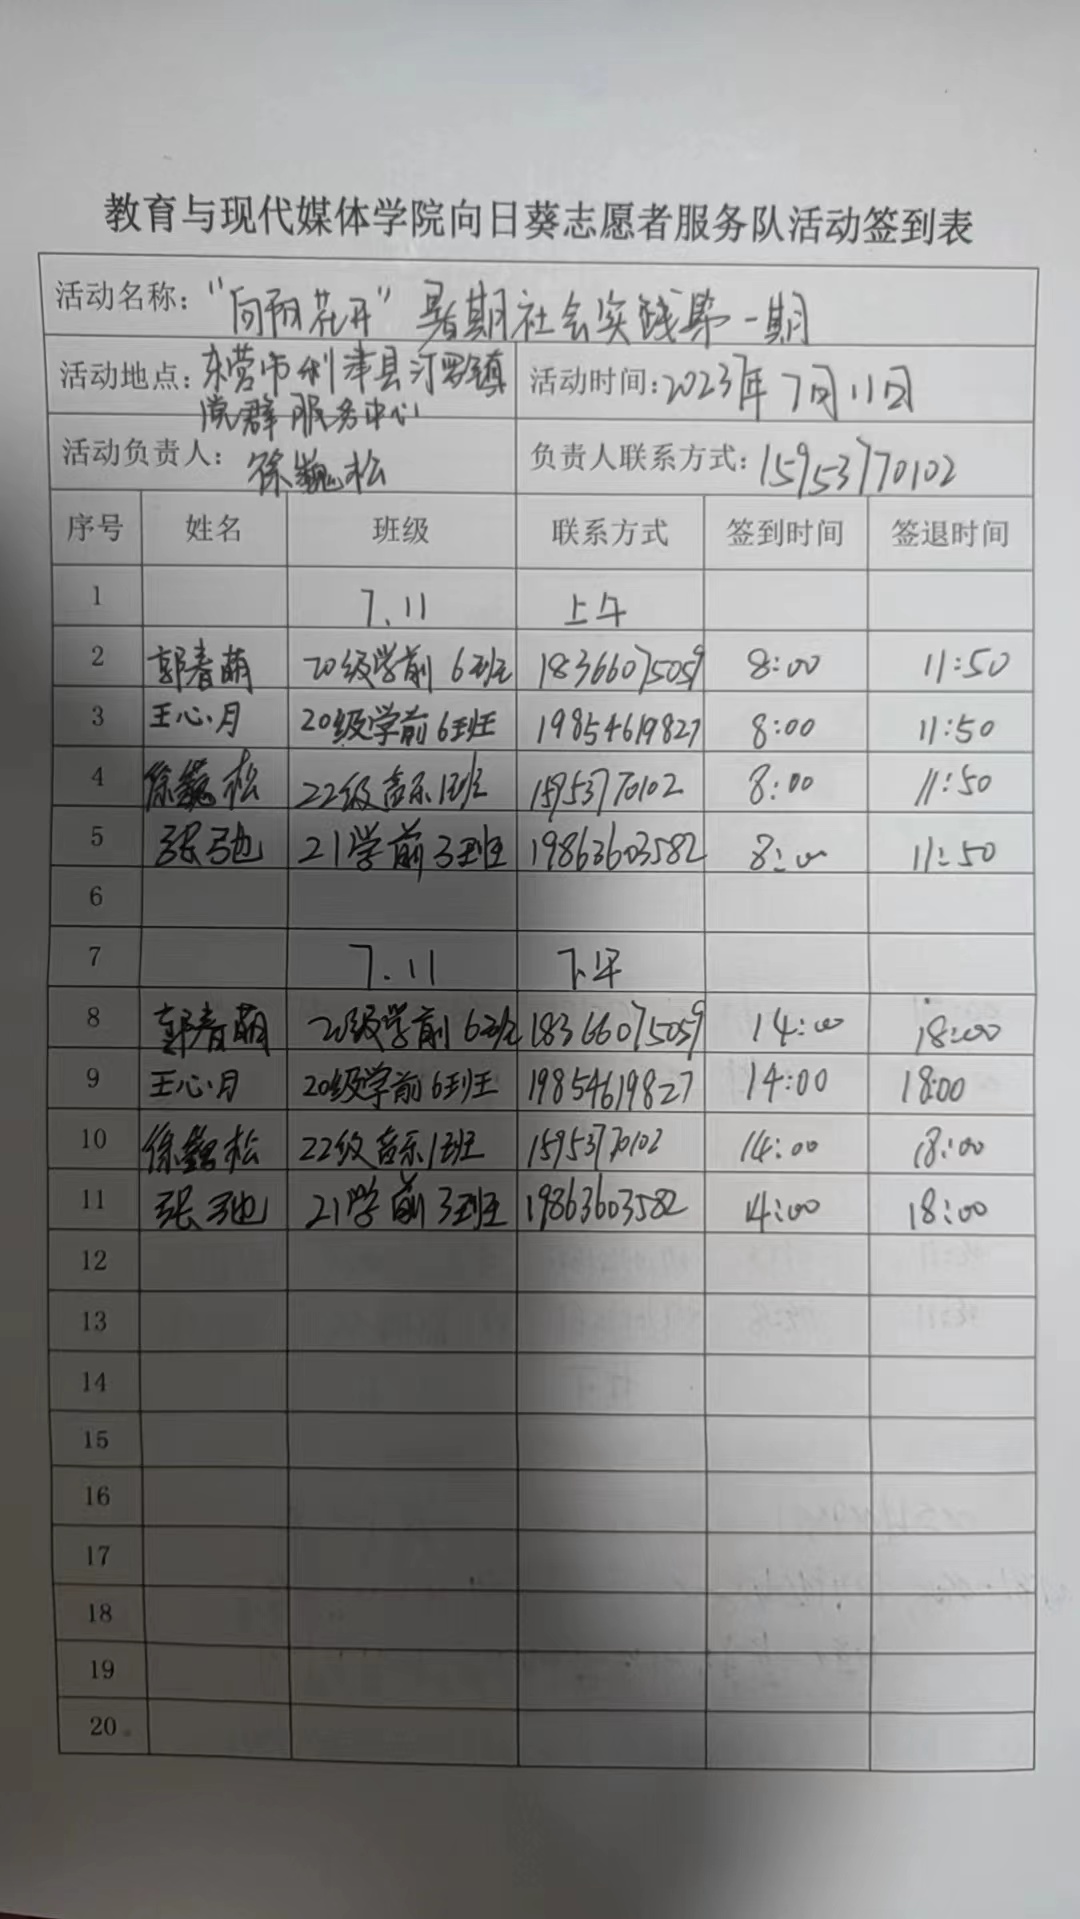 教育与现代媒体学院向日葵志愿者服务队活动签到表
活动名称：“向阳花开”暑期社会实践第一期
活动地点：东营市利津县汀罗镇
党群服务中心
活动时间：2023年7月11日
活动负责人：徐巍松
负责人联系方式：15953770102
序号 姓名 班级 联系方式 签到时间 签退时间
1 7.11 上午
2 郭春萌 20级学前6班 18366075059 8:00 11:50
3 王心月 20级学前6班 19854619827 8:00 11:50
4 徐巍松 22级音乐1班 15953770102 8:00 11:50
5 张弛 21学前3班 19863603582 8:00 11:50
6
7 7.11 下午
8 郭春萌 20级学前6班 18366075059 14:00 18:00
9 王心月 20级学前6班 19854619827 14:00 18:00
10 徐巍松 22级音乐1班 15953770102 14:00 18:00
11 张弛 21学前3班 19863603582 14:00 18:00
12
13
14
15
16
17
18
19
20